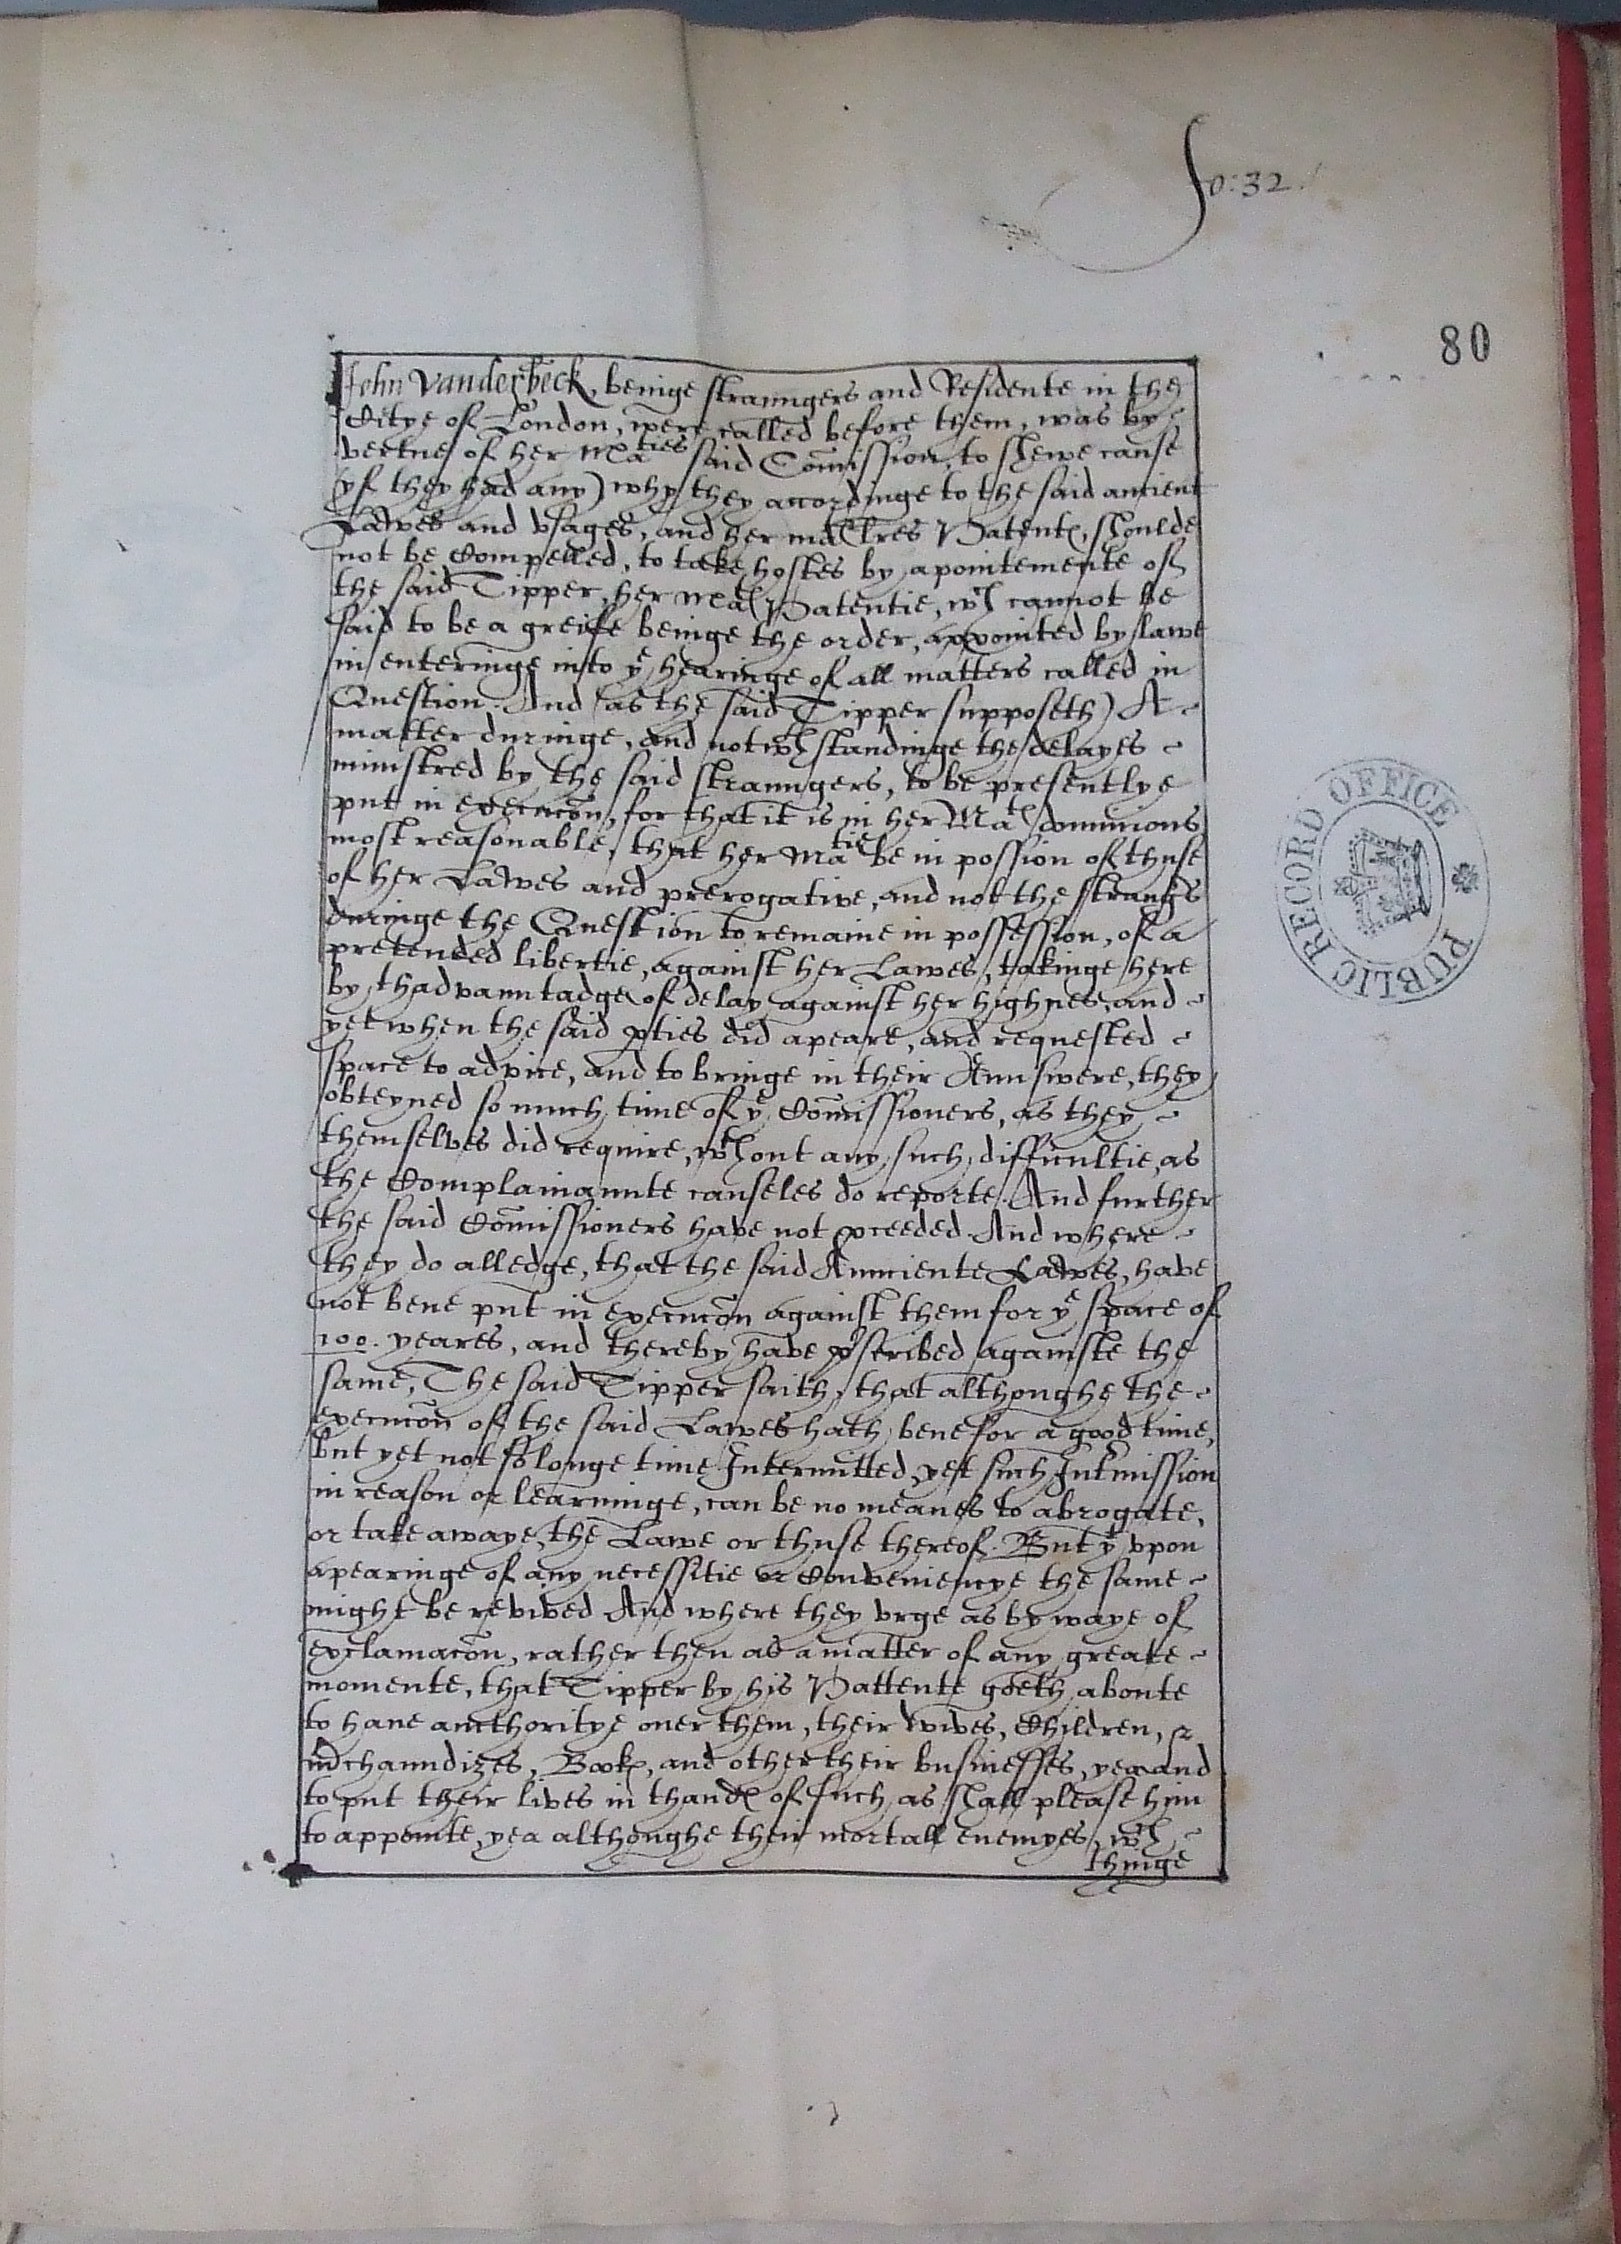 fo: 32.
80
John Vanderbeck, beinge straungers and Residente in the
Citye of London, were called before them, was by
vertue of her Maties said Comission, to shewe cause
(yf they had any) why they accordinge to the said ancient
Lawes and vsages, and her mats lres Patents, shoulde
not be Compelled, to take hostes by apointemente of
the said Tipper, her Mats Patentie, wch cannot be
said to be a greife beinge the order, appointed by lawe
in enteringe into ye hearinge of all matters called in
Question. And (as the said Tipper supposeth) A
matter duringe, and notwthstandinge the delayes
ministred by the said straungers, to be presentlye
put in execucon, for that it is in her Mats dominions
most reasonable, that her Matie be in possion of thuse
of her Lawes and prerogative, and not the strangrs
duringe the Question to remaine in possession, of a
pretended libertie, against her Lawes, takinge here
by thadvauntadge of delay against her highnes, and
yet when the said pties did apeare, and requested
space to advice, and to bringe in their Aunswere, they
obteyned so much time of ye Comissioners, as they
themselves did require, wthout any such difficultie, as
the Complainaunte causeles do reporte. And further
the said Comissioners have not pceeded. And where
they do alledge, that the said Aunciente Lawes, have
not bene put in execucon against them for ye space of
100. yeares, and thereby have pscribed againste the
same, The said Tipper saith, that althoughe the
execucon of the said Lawes hath bene for a good time,
but yet not so longe time Intermitted, yet such Intmission
in reason or learninge, can be no meanes to abrogate,
or take awaye, the Lawe or thuse thereof. But yt vpon
apearinge of any necessitie or Conveniencye the same
might be revived And where they vrge as by waye of
exclamacon, rather then as a matter of any greate
momente, that Tipper by his Pattente goeth aboute
to haue aucthoritye ouer them, their wives, Children,
mchaundizes, Books, and other their businesses, yea and
to put their lives in thands of such as shall please him
to appointe, yea althoughe their mortall enemyes, wch
thinge
PUBLIC RECORD OFFICE